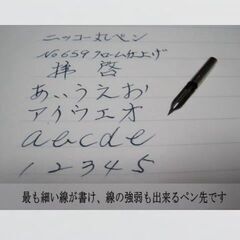 ニッコー丸ペン
No659クローム仕上げ
拝啓
あいうえお
アイウエオ
abcde
12345
最も細い線が書け、線の強弱も出来るペン先です